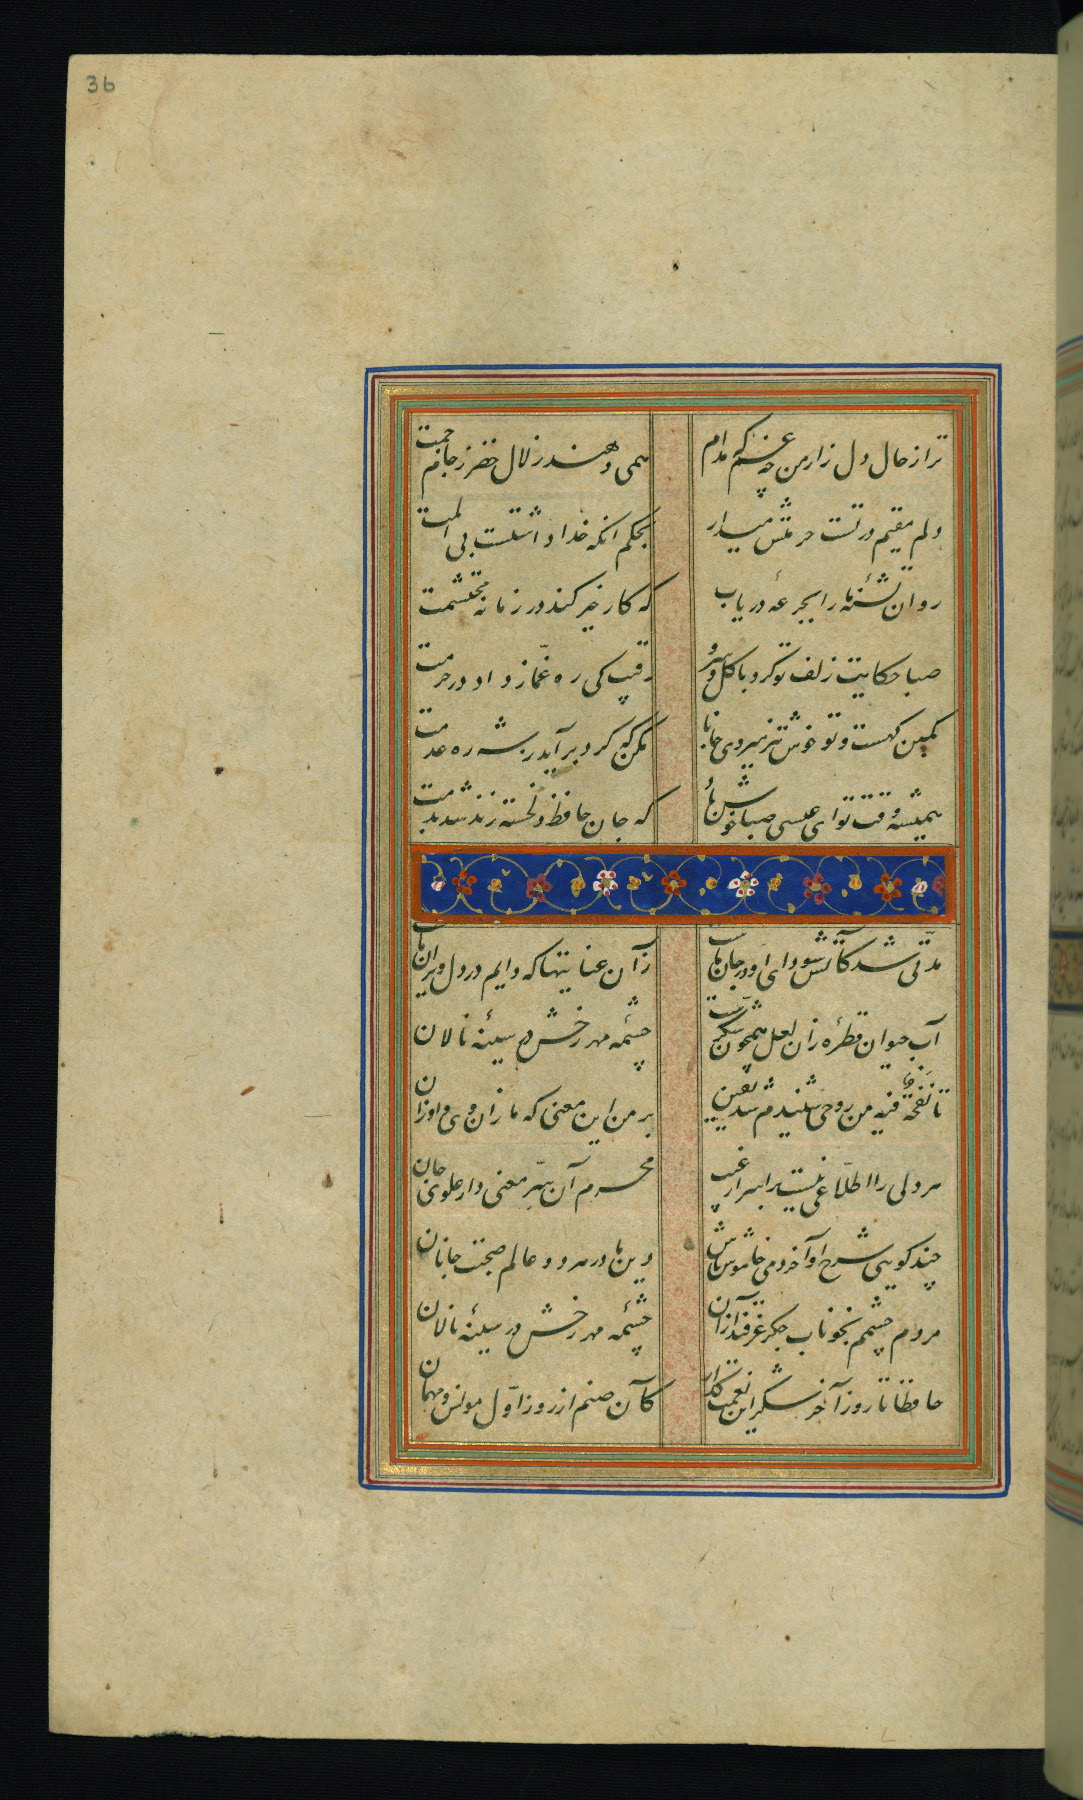 36
ترا ز حال دل زار من چه غم که مدام
همی دهند زلال خضر ز جام جمت
دلم مقیم در تست حرمتش میدار
بحکم انکه خدا داشتست بی المت
روان تشنه ما را بجرعهٔ دریاب
که کار خیر کند در زمانه محتشمت
صبا حکایت زلف تو کرد با کل و سرو
رقیب کی ره غمّاز داد در حرمت
کمین کهست و تو خوش تیز میروی جانا
مکن که کرد برآید ز شه ره عدمت
همیشه وقت تو ای عیسی صبا خوش باد
که جان حافظ دلخسته زنده شد بدمت
مدّتی شد کآتش سودای او در جان ماست
زآن عنایتها که دایم در دل ویران ماست
آب حیوان قطرهٔ زان لعل همچون شکّرست
چشمه مهر رخش در سینهٔ نالان
تا نفخة فیه من روحی شنیدم شد یقین
بر من این معنی که ما زان وی و او زان
هر دلی را اطلّاعی نیست بر اسرار غیب
محرم آن سِرّ معنی دار علوی جان
چند کویی شرح او آخر دمی خاموش باش
دین ما در هر دو عالم صحبت جانان
مردم چشمم بخوناب جکر غرقند از آن
چشمهٔ مهر رخش در سینهٔ نالان
حافظا تا روز آخر شکر این نعمت کذار
کآن صنم از روز اوّل مونس و مهمان